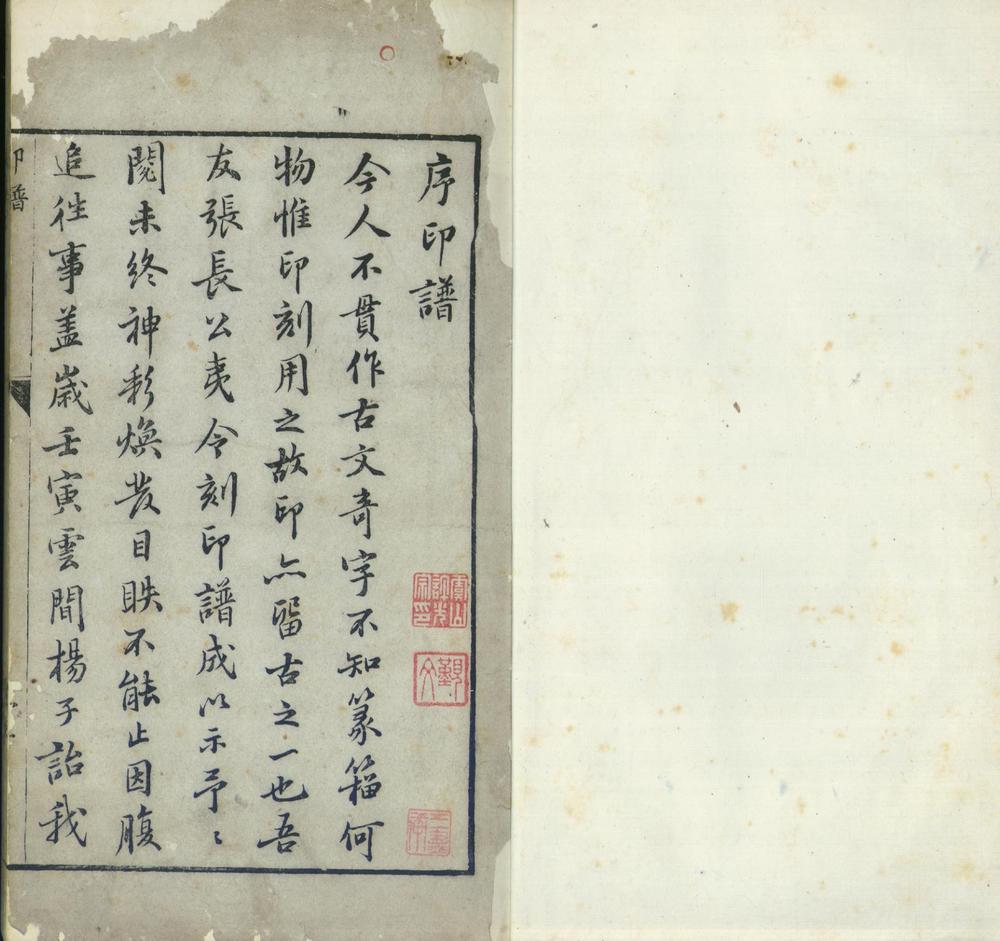 序印譜
今人不貫作古文奇字不知篆籀何
物惟印刻用之故印亦畱古之一也吾
友張長公夷令刻印譜成以示予〻
閱未終神彩煥發目眣不能止因腹
追徃事盖歲壬寅雲間楊子詒我
印譜